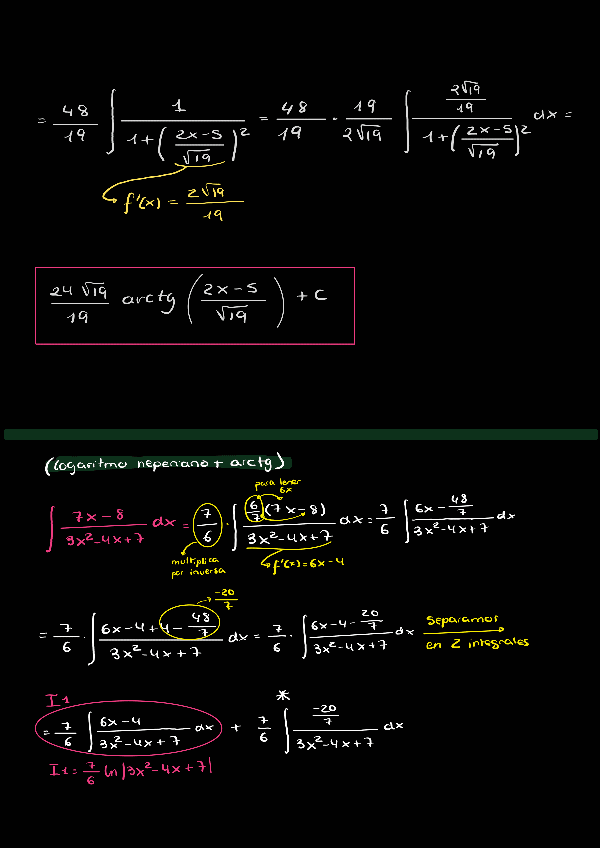 = 48/19 ∫ 1/(1+((2x-5)/√19)²) = 48/19 · 19/(2√19) ∫ (2√19/19)/(1+((2x-5)/√19)²) dx =
f'(x) = 2√19/19
24√19/19 arctg ((2x-5)/√19) + C
(logaritmo neperiano + arctg)
para tener 6x
∫ (7x-8)/(3x²-4x+7) dx = 7/6 · ∫ (6/7(7x-8))/(3x²-4x+7) dx = 7/6 ∫ (6x-48/7)/(3x²-4x+7) dx
multiplica por inversa
f'(x)=6x-4
-20/7
= 7/6 · ∫ (6x-4+4-48/7)/(3x²-4x+7) dx = 7/6 · ∫ (6x-4-20/7)/(3x²-4x+7) dx Separamos en 2 integrales
I1 *
= 7/6 ∫ (6x-4)/(3x²-4x+7) dx + 7/6 ∫ (-20/7)/(3x²-4x+7) dx
I1 = 7/6 ln|3x²-4x+7|